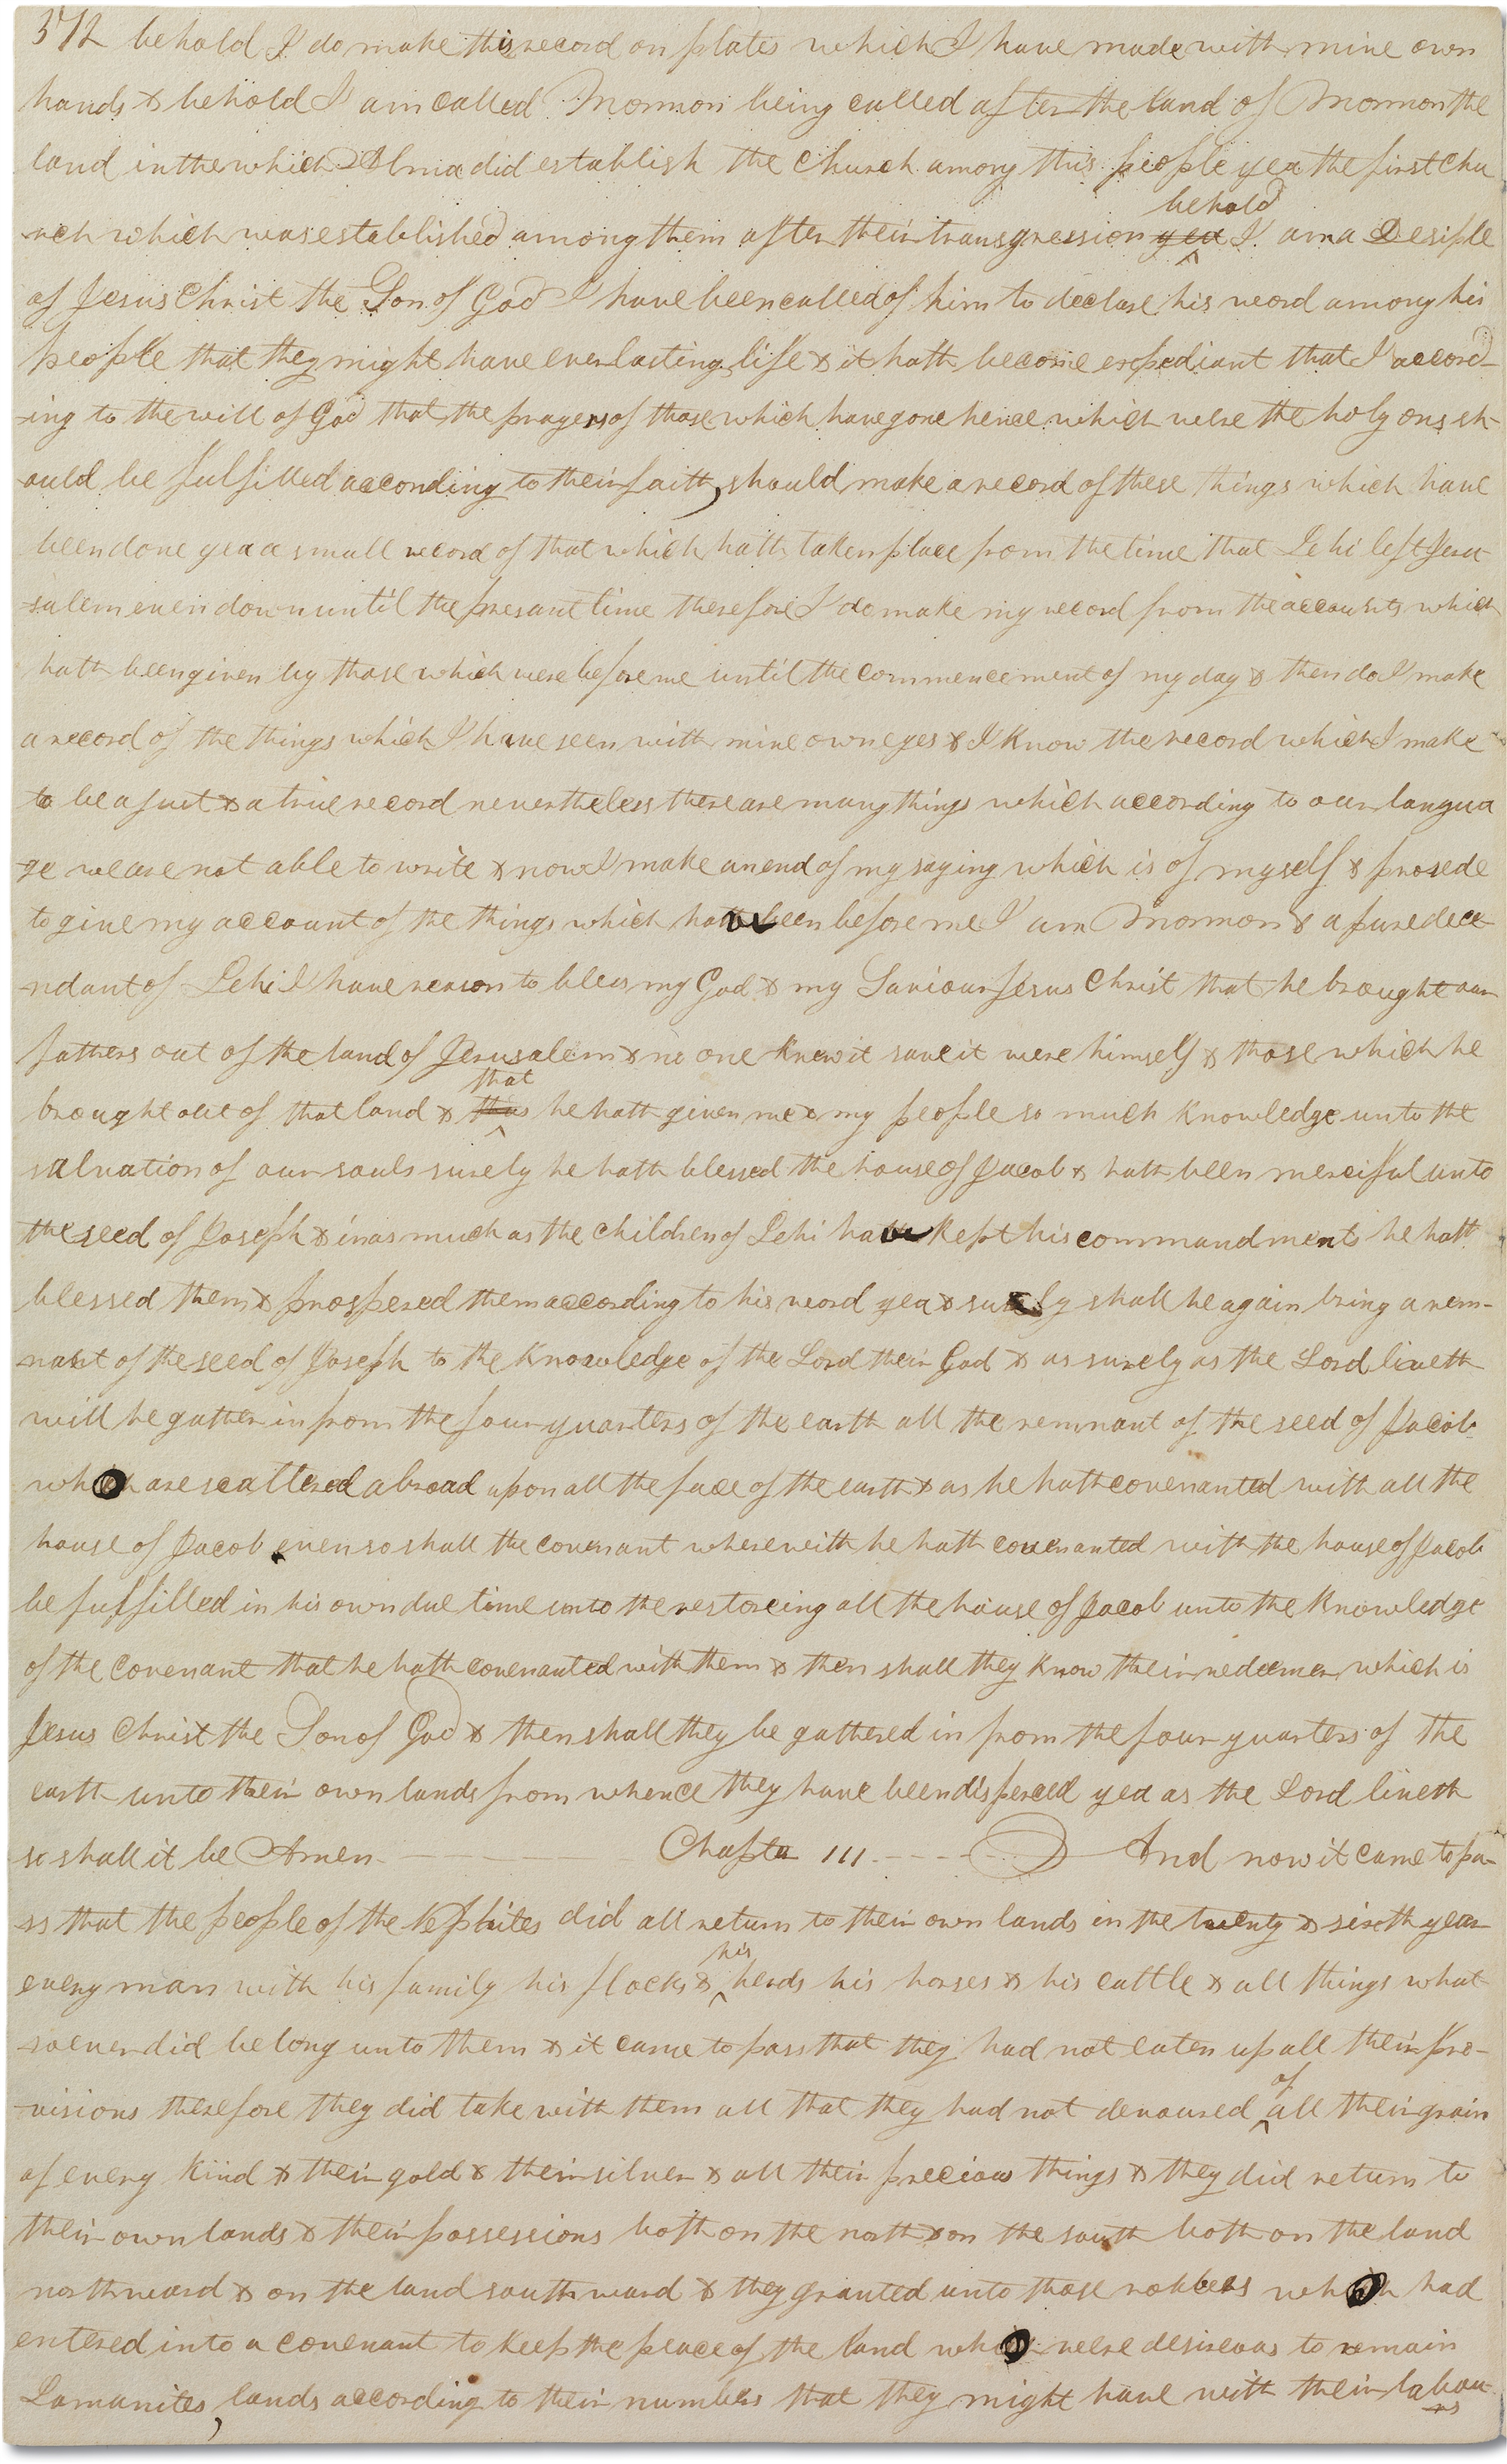 372 behold I do make this record on plates which I have made with mine own
hands & behold I am called Mormon being called after the land of Mormon the
land in the which Alma did establish the Church among this people yea the first chu
behold
rch which was established among them after their transgression yea I am a Desiple
of Jesus Christ the Son of God I have been called of him to declare his word among his
people that they might have everlasting life & it hath become expediant that I accord-
-ing to the will of God that the prayers of those which have gone hence which were the holy ons sh-
ould be fulfilled according to their faith, should make a record of these things which have
been done yea a small record of that which hath taken place from the time that Lehi left Jeru
-salem even down until the presant time therefore I do make my record from the accounts which
hath been given by those which were before me until the commencement of my day & then do I make
a record of the things which I have seen with mine own eyes & I know the record which I make
to be a just & a true record nevertheless there are many things which according to our langua
-ge we are not able to write & now I make an end of my saying which is of myself & prosede
to give my account of the things which have been before me I am Mormon & a pure dece-
-ndant of Lehi I have reason to bless my God & my Saviour Jesus Christ that he brought our
fathers out of the land of Jerusalem & no one knew it save it were himself & those which he
that
brought out of that land & thus he hath given me & my people so much knowledge unto the
salvation of our souls surely he hath blessed the house of Jacob & hath been merciful unto
the seed of Joseph & inasmuch as the children of Lehi have kept his commandments he hath
blessed them & prospered them according to his word yea & surely shall he again bring a rem-
-nant of the seed of Joseph to the knowledge of the Lord their God & as surely as the Lord liveth
will he gather in from the four quarters of the earth all the remnant of the seed of Jacob
who are scattered abroad upon all the face of the earth & as he hath covenanted with all the
house of Jacob even so shall the covenant wherewith he hath covenanted with the house of Jacob
be fulfilled in his own due time unto the restoreing all the house of Jacob unto the knowledge
of the covenant that he hath covenanted with them & then shall they know their redeemer which is
Jesus Christ the Son of God & then shall they be gathered in from the four quarters of the
earth unto their own lands from whence they have been dispersed yea as the Lord liveth
so shall it be Amen Chapter III And now it came to pa-
-ss that the people of the Nephites did all return to their own lands in the twenty & sixth year
his
every man with his family his flocks & herds his horses & his cattle & all things what
-soever did belong unto them & it came to pass that they had not eaten up all their pro-
of
-visions therefore they did take with them all that they had not devoured all their grain
of every kind & their gold & their silver & all their precious things & they did return to
their own lands & their possessions both on the north & on the south both on the land
northward & on the land southward & they granted unto those robbers who had
entered into a covenant to keep the peace of the land who were desireous to remain
Lamanites, lands according to their numbers that they might have with their labou
rs